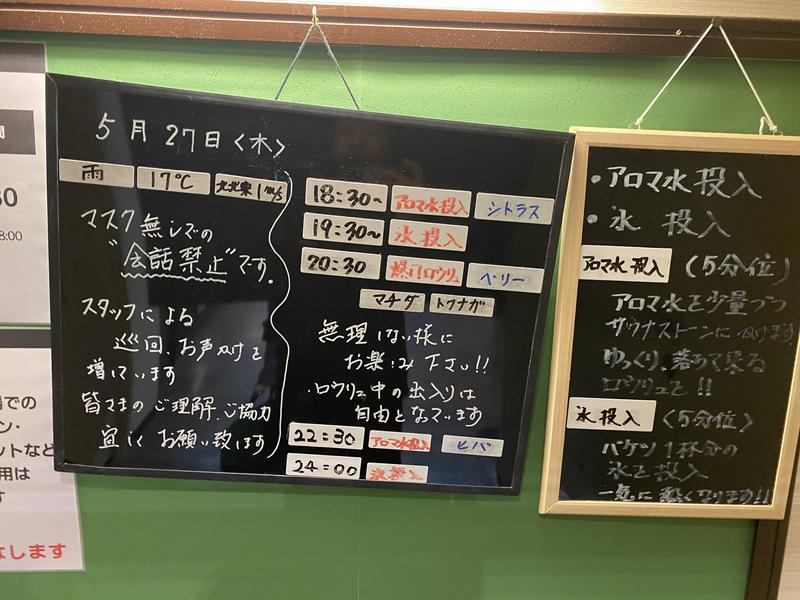 5月27日<木>
雨 17℃ 北北東1m/s
マスク無しでの
"会話禁止"です。
スタッフによる
巡回、お声かけを
増しています
皆さまのご理解、ご協力
宜しくお願い致します
18:30~ アロマ水投入 シトラス
19:30~ 氷投入
20:30 爆汗ロウリュ ベリー
マチダ トクナガ
無理しない様に
お楽しみ下さい!!
・ロウリュ中の出入りは
自由となっています
22:30 アロマ水投入 ヒバ
24:00 氷投入
・アロマ水投入
・氷投入
アロマ水投入 (5分位)
アロマ水を少量づつ
サウナストーンに
ゆっくり、落ちて来る
ロウリュで!!
氷投入 <5分位>
バケツ1杯分の
氷を投入
一気に熱くなります!!
30
8:00
での
ン・
ットなど
用は
す
なします